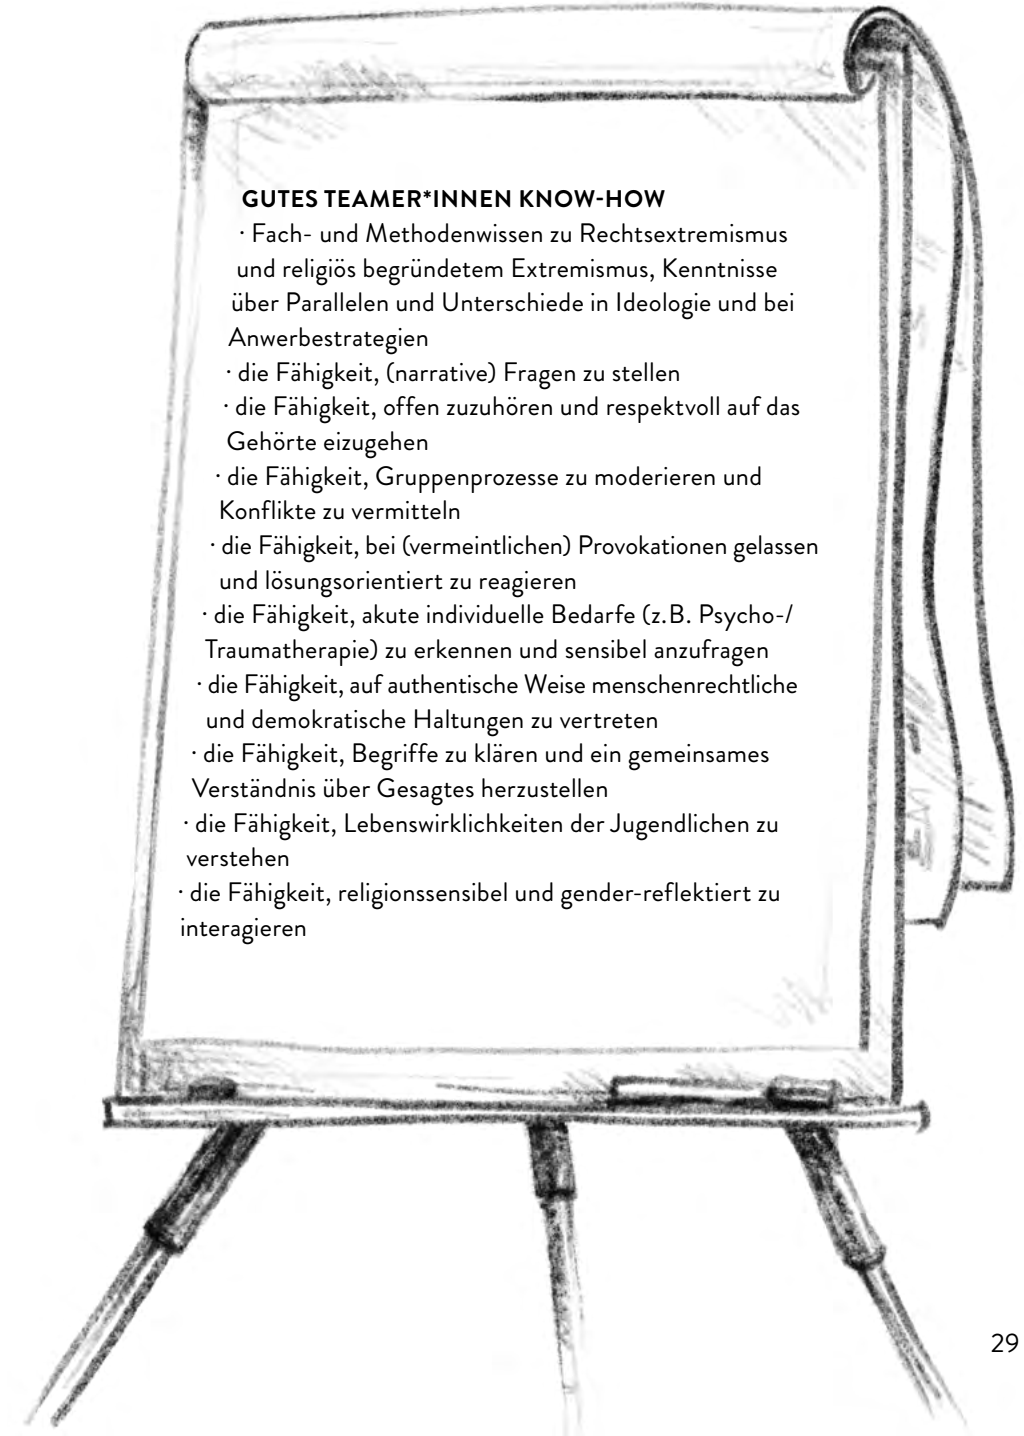 GUTES TEAMER*INNEN KNOW-HOW
· Fach- und Methodenwissen zu Rechtsextremismus
und religiös begründetem Extremismus, Kenntnisse
über Parallelen und Unterschiede in Ideologie und bei
Anwerbestrategien
· die Fähigkeit, (narrative) Fragen zu stellen
· die Fähigkeit, offen zuzuhören und respektvoll auf das
Gehörte eizugehen
· die Fähigkeit, Gruppenprozesse zu moderieren und
Konflikte zu vermitteln
· die Fähigkeit, bei (vermeintlichen) Provokationen gelassen
und lösungsorientiert zu reagieren
· die Fähigkeit, akute individuelle Bedarfe (z.B. Psycho-/
Traumatherapie) zu erkennen und sensibel anzufragen
· die Fähigkeit, auf authentische Weise menschenrechtliche
und demokratische Haltungen zu vertreten
· die Fähigkeit, Begriffe zu klären und ein gemeinsames
Verständnis über Gesagtes herzustellen
· die Fähigkeit, Lebenswirklichkeiten der Jugendlichen zu
verstehen
· die Fähigkeit, religionssensibel und gender-reflektiert zu
interagieren
29